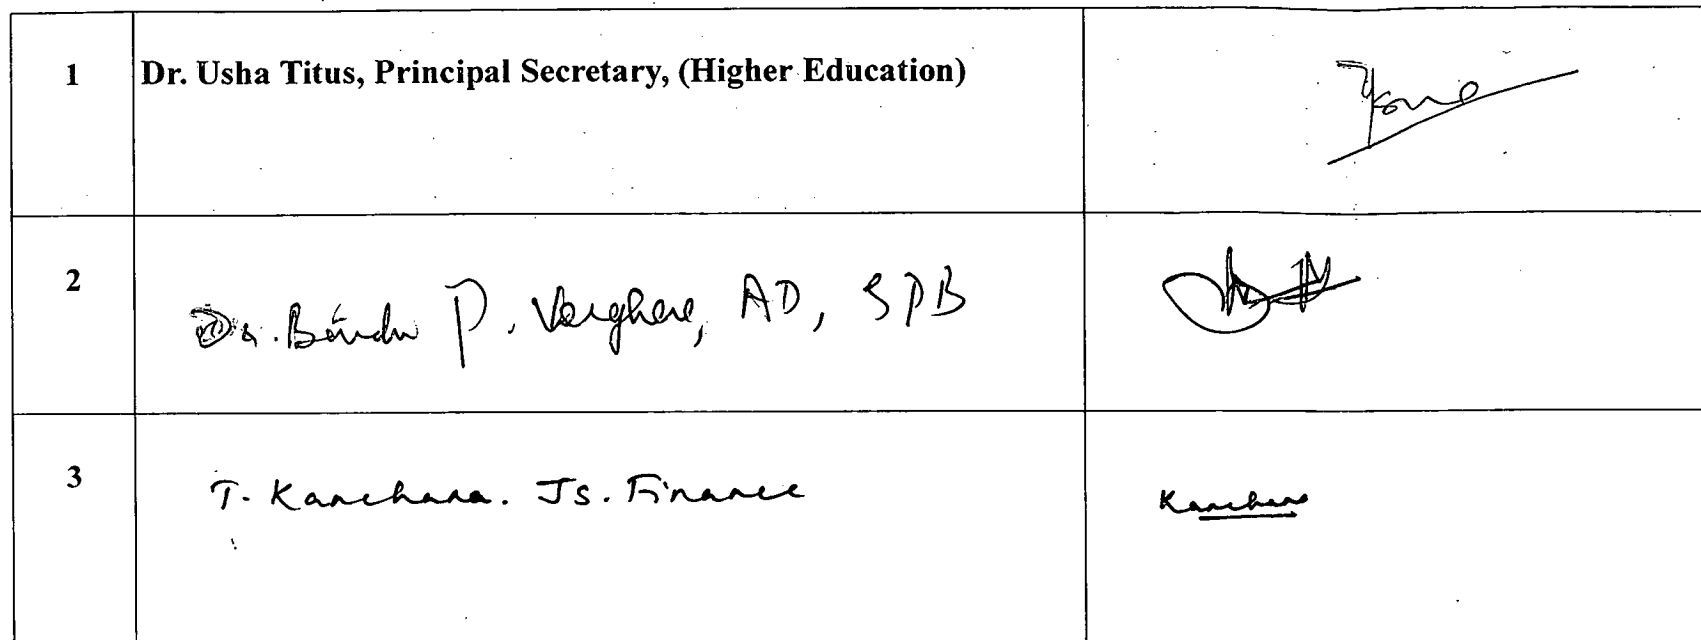 1 Dr. Usha Titus, Principal Secretary, (Higher Education)
2 Dr. Bindu P. Verghese, AD, SPB
3 T. Kanchana. JS. Finance Kanchana